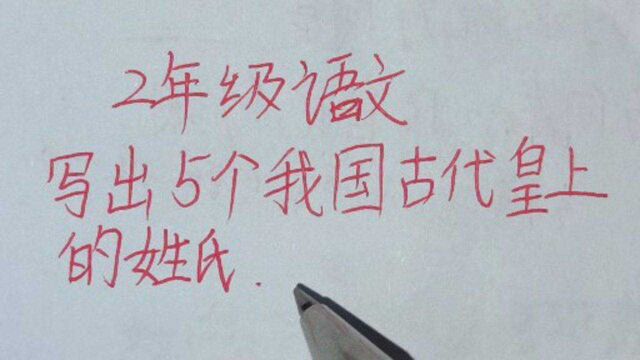 2年级语文
写出5个我国古代皇上
的姓氏.